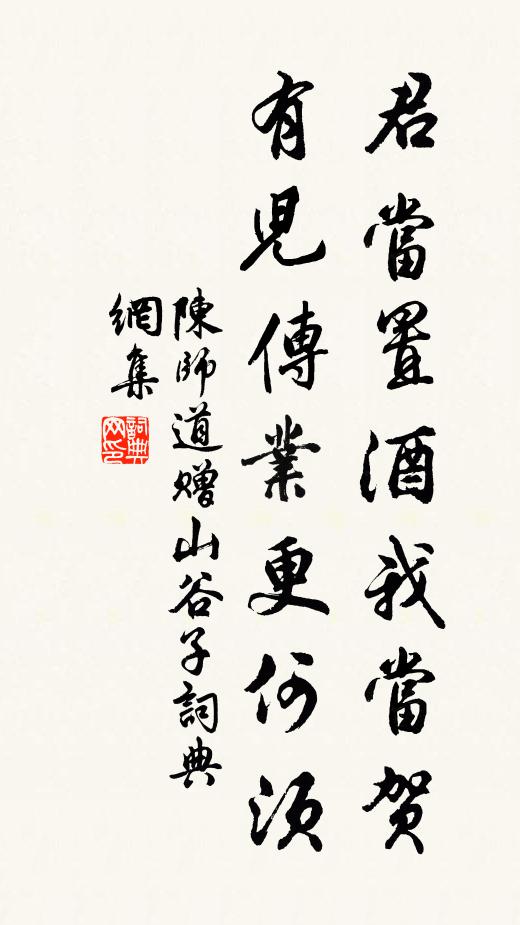 君當置酒我當賀
有兒傳業更何須
陳師道贈山谷子詞典
網集
詞典
网印